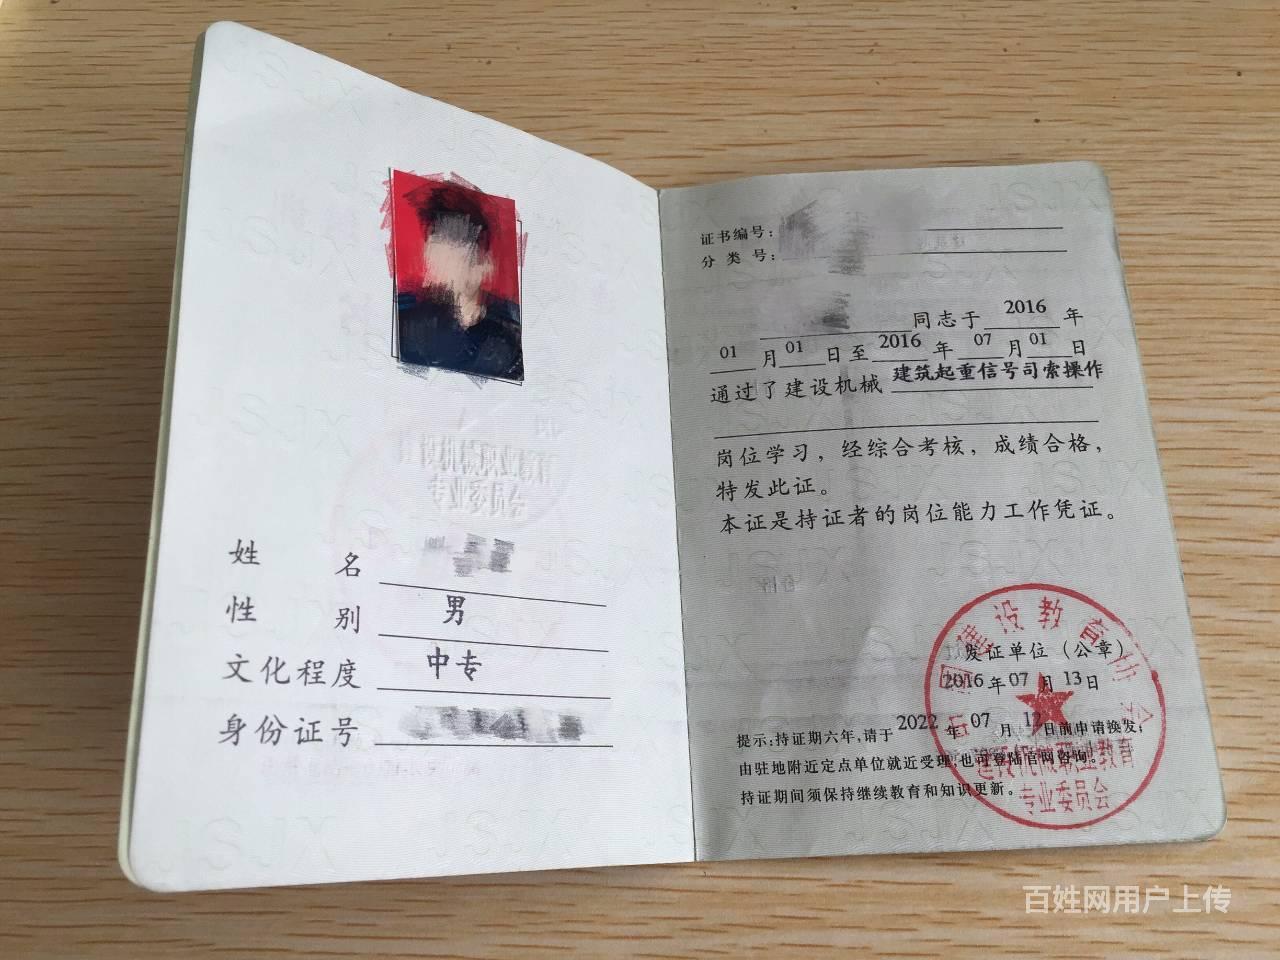 姓 名
性 别 男
文化程度 中专
身份证号
证书编号：
分 类 号：
同志于 2016 年
01 月 01 日至 2016 年 07 月 01 日
通过了建设机械 建筑起重信号司索操作
岗位学习，经综合考核，成绩合格，
特发此证。
本证是持证者的岗位能力工作凭证。
发证单位（公章）
2016 年 07 月 13 日
提示：持证期六年，请于 2022 年 07 月 12 日前申请换发；
由驻地附近定点单位就近受理，也可登陆官网咨询。
持证期间须保持继续教育和知识更新。
中国建设教育协会
建设机械职业教育
专业委员会
百姓网用户上传